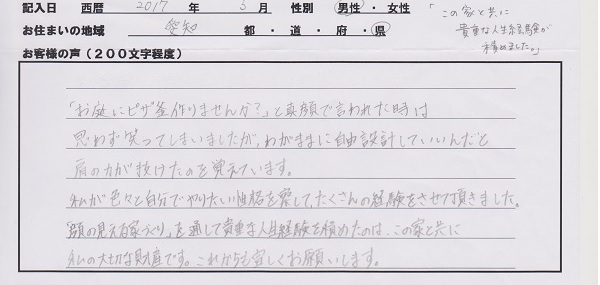 記入日 西暦 2017 年 3 月 性別 男性・女性
「この家と共に
貴重な人生経験が
積めました。」
お住まいの地域 愛知 都・道・府・県
お客様の声（２００文字程度）
「お庭にピザ釜作りませんか？」と真顔で言われた時は
思わず笑ってしまいましたが、わがままに自由設計していいんだと
肩の力が抜けたのを覚えています。
私が色々と自分でやりたい性格を察して、たくさんの経験をさせて頂きました。
「顔の見える家づくり」を通して貴重な人生経験を積めたのは、この家と共に
私の大切な財産です。これからも宜しくお願いします。